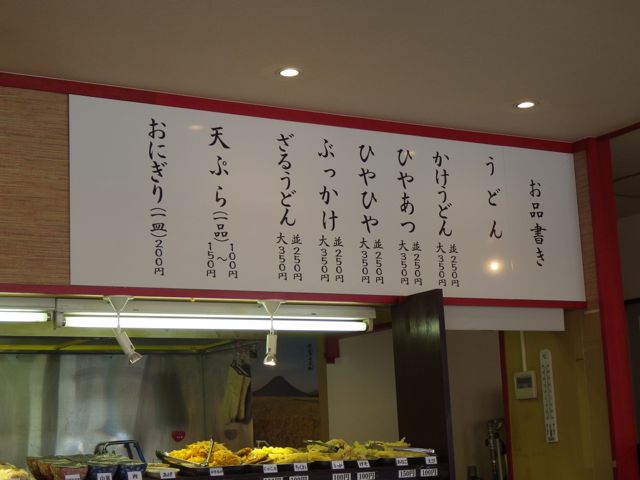 お品書き
うどん
かけうどん 並250円 大350円
ひやあつ 並250円 大350円
ひやひや 並250円 大350円
ぶっかけ 並250円 大350円
ざるうどん 並250円 大350円
天ぷら(一品) 100円〜150円
おにぎり(一皿) 200円
100円
100円
150円
100円